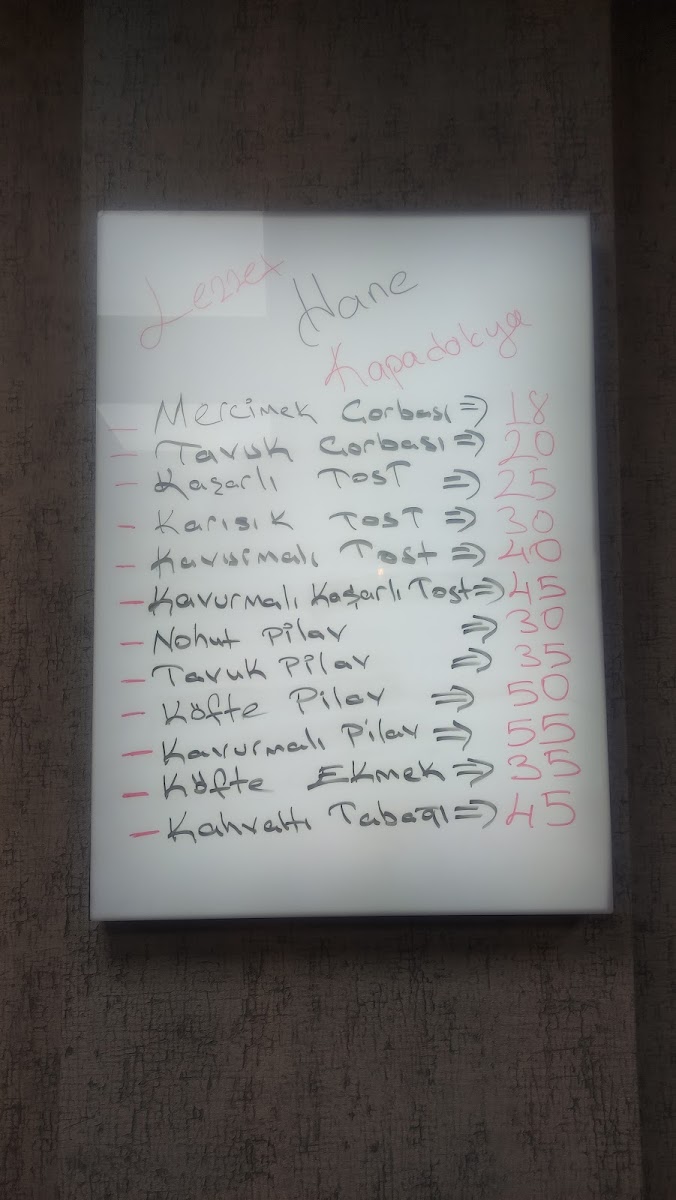 Lezzet Hane
Kapadokya
- Mercimek Çorbası => 18
- Tavuk Çorbası => 20
- Kaşarlı Tost => 25
- Karışık Tost => 30
- Kavurmalı Tost => 40
- Kavurmalı Kaşarlı Tost => 45
- Nohut Pilav => 30
- Tavuk Pilav => 35
- Köfte Pilav => 50
- Kavurmalı Pilav => 55
- Köfte Ekmek => 35
- Kahvaltı Tabağı => 45